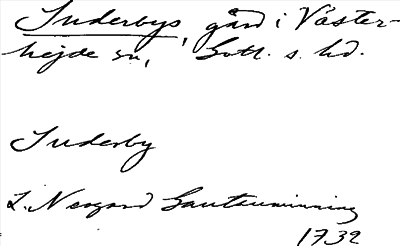 Suderbys, gård i Väster-
hejde sn, Gotl. s. hd.
Suderby
L. Neogard Gautauminning
1732